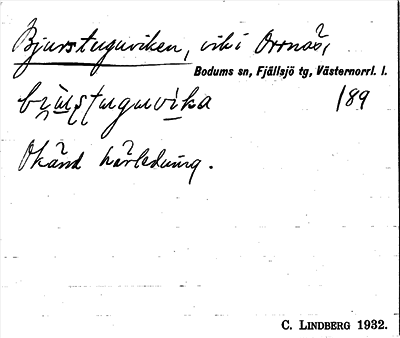 Bjurstuguviken, vik i Orrnäs,
Bodums sn, Fjällsjö tg, Västernorrl. l.
bju̇stuguvika 189
Okänd härledning.
C. LINDBERG 1932.